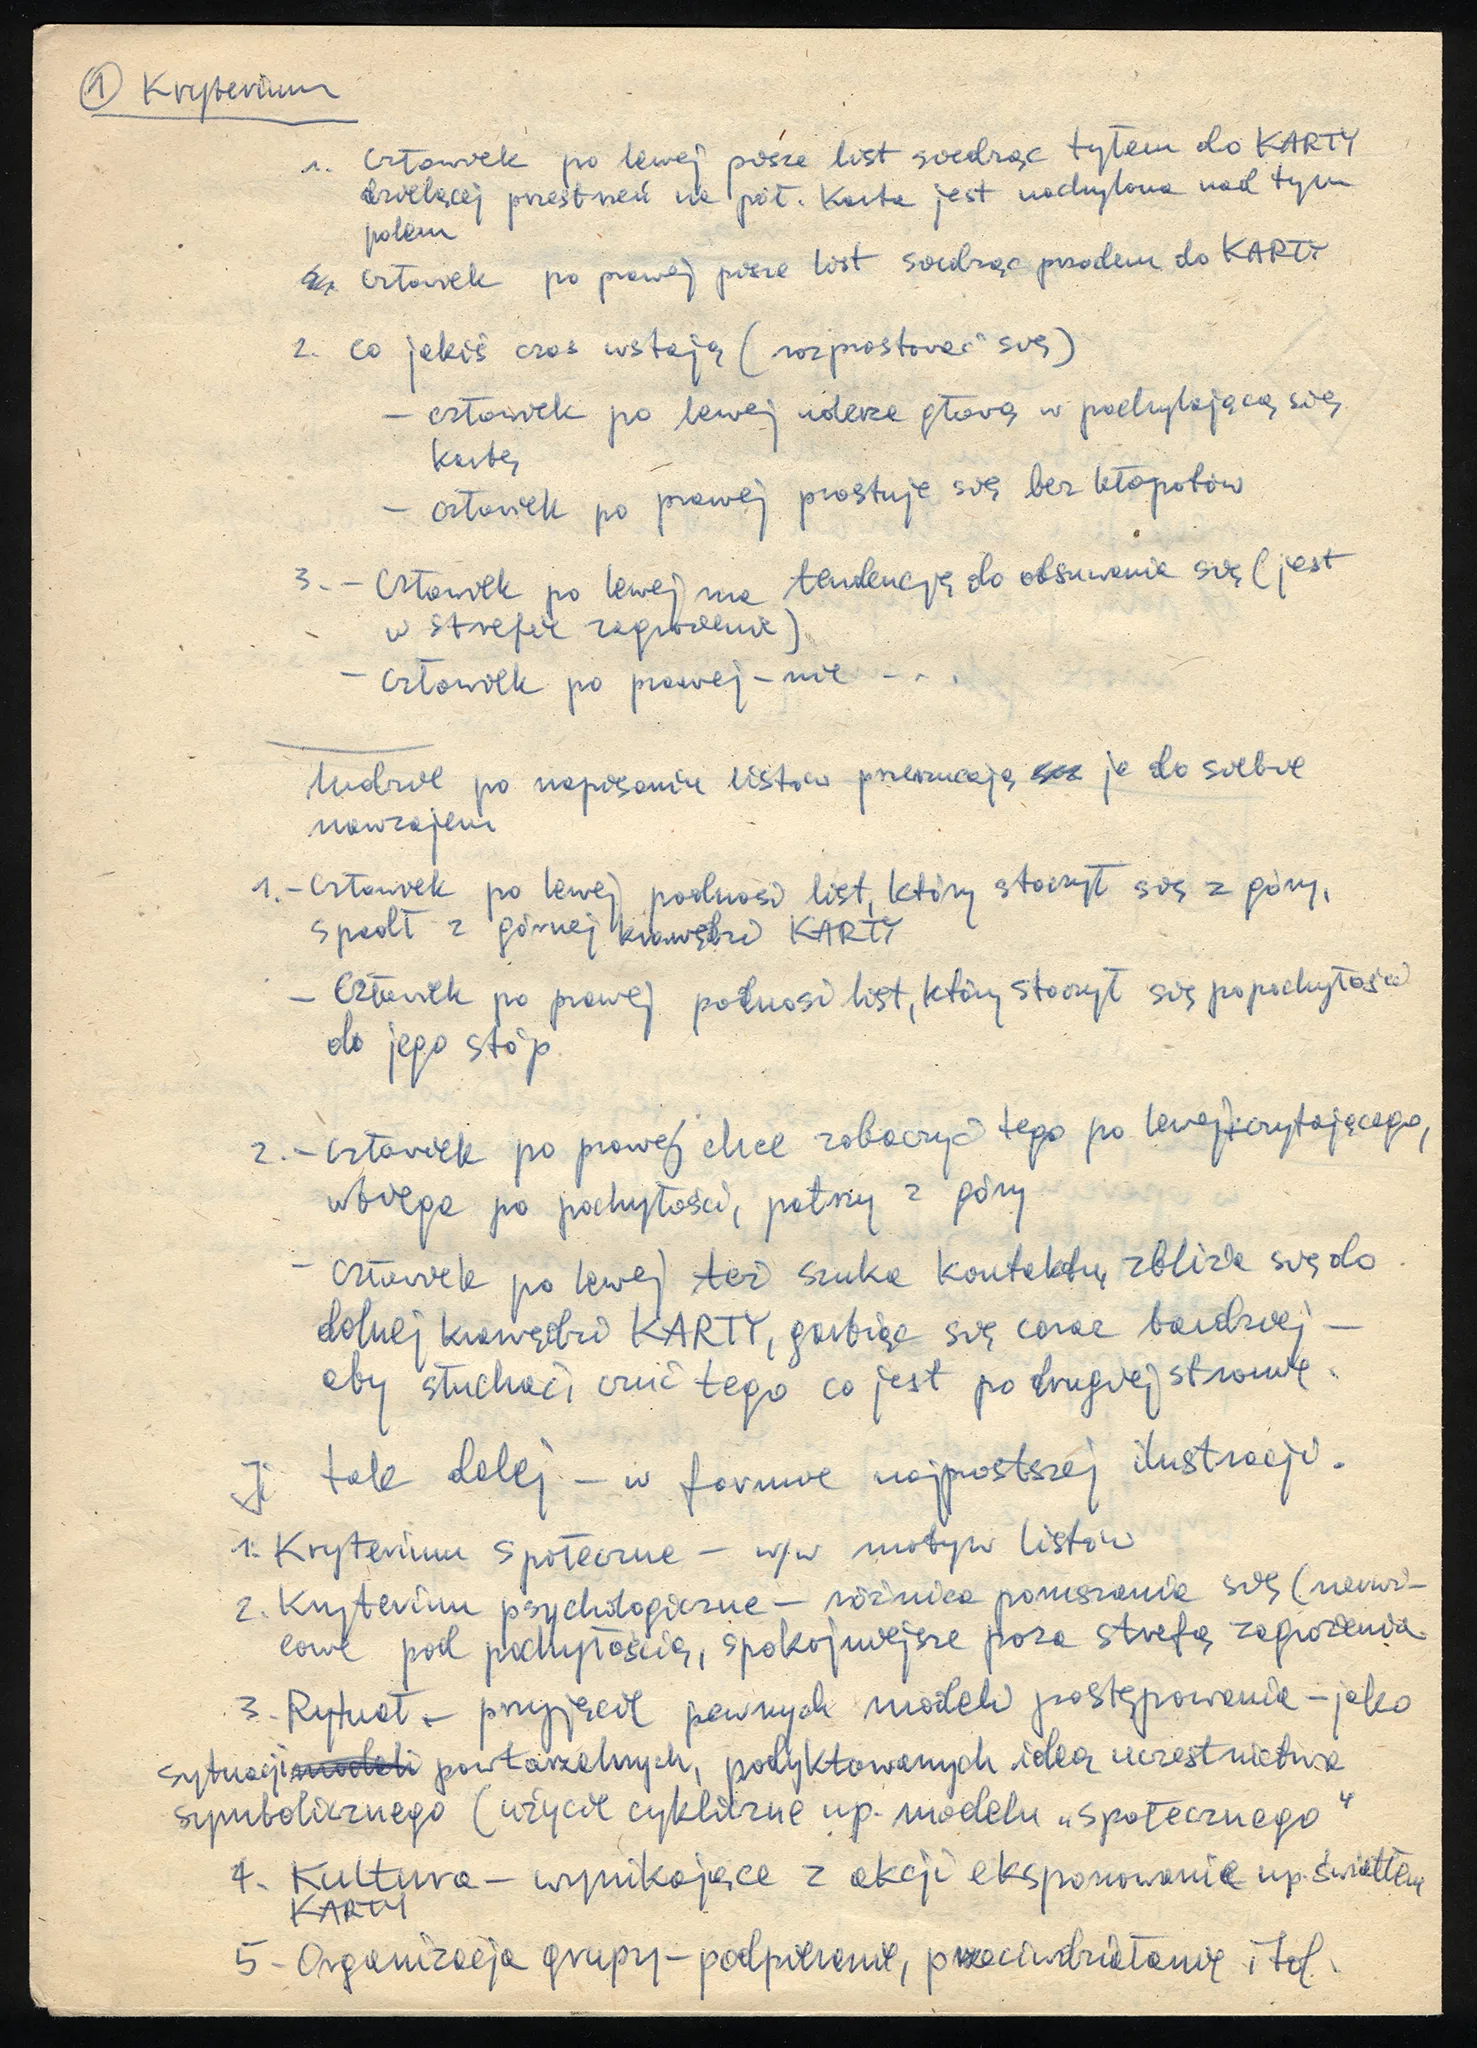 ① Kryterium
1. Człowiek po lewej pisze list siedząc tyłem do KARTY
dzielącej przestrzeń na pół. Karta jest nachylona nad tym
polem
człowiek po prawej pisze list siedząc przodem do KARTY
2. co jakiś czas wstają (rozprostować się)
- człowiek po lewej uderza głową w pochylającą się
kartę
- człowiek po prawej prostuje się bez kłopotów
3. - Człowiek po lewej ma tendencję do obsuwania się (jest
w strefie zagrożenia)
- człowiek po prawej - nie - . .
ludzie po napisaniu listów przerzucają je do siebie
nawzajem
1. - Człowiek po lewej podnosi list, który stoczył się z góry,
spadł z górnej krawędzi KARTY
- Człowiek po prawej podnosi list, który stoczył się po pochyłości
do jego stóp
2. - człowiek po prawej chce zobaczyć tego po lewej, czytającego,
wbiega po pochyłości, patrzy z góry
- człowiek po lewej też szuka kontaktu, zbliża się do
dolnej krawędzi KARTY, garbiąc się coraz bardziej -
aby słuchać, czuć tego co jest po drugiej stronie.
I tak dalej - w formie najprostszej ilustracji.
1. Kryterium społeczne - w/w motyw listów
2. Kryterium psychologiczne - różnica poruszania się (nerwi-
cowe pod pochyłością, spokojniejsze poza strefą zagrożenia.
3. Rytuał - przyjęcie pewnych modeli postępowania - jako
sytuacji modeli powtarzalnych, podyktowanych ideą uczestnictwa
symbolicznego (użycie cykliczne np. modelu „społecznego"
4. Kultura - wynikające z akcji eksponowanie np. światłem
KARTY
5 - Organizacja grupy - podpieranie, przeciwdziałanie itd.